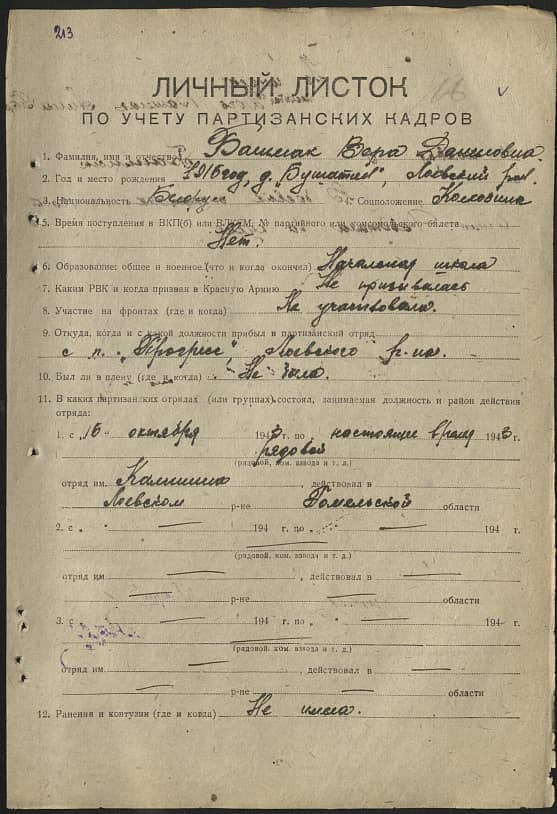 213
ЛИЧНЫЙ ЛИСТОК
ПО УЧЕТУ ПАРТИЗАНСКИХ КАДРОВ
1. Фамилия, имя и отчество Вера Даниловна.
2. Год и место рождения 1916 год, д. Лоевский
3. Национальность Белорус 4. Соцположение Колхозница
5. Время поступления в ВКП(б) или ВЛКСМ, № партийного или комсомольского билета
Нет.
6. Образование: общее и военное (что и когда окончил) Начальная школа
7. Каким РВК и когда призван в Красную Армию Не призывалась
8. Участие на фронтах (где и когда) Не участвовала.
9. Откуда, когда и с какой должности прибыл в партизанский отряд
с п. „Прогресс", Лоевского р-на.
10. Был ли в плену (где и когда) Не была.
11. В каких партизанских отрядах (или группах) состоял, занимаемая должность и район действия
отряда:
1. с „16" октября 1943 г. по настоящие время 1943 г.
рядовой
(рядовой, ком. взвода и т. д.)
отряд им Калинина , действовал в
Лоевском р-не Гомельской области
2. с „ — 194 г. по „ — 194 г.
(рядовой, ком. взвода и т. д.)
отряд им — , действовал в —
— р-не — области
3. с — 194 г. по — 194 г.
(рядовой, ком. взвода и т. д.)
отряд им. — , действовал в —
— р-не — области
12. Ранения и контузии (где и когда) Не имела.